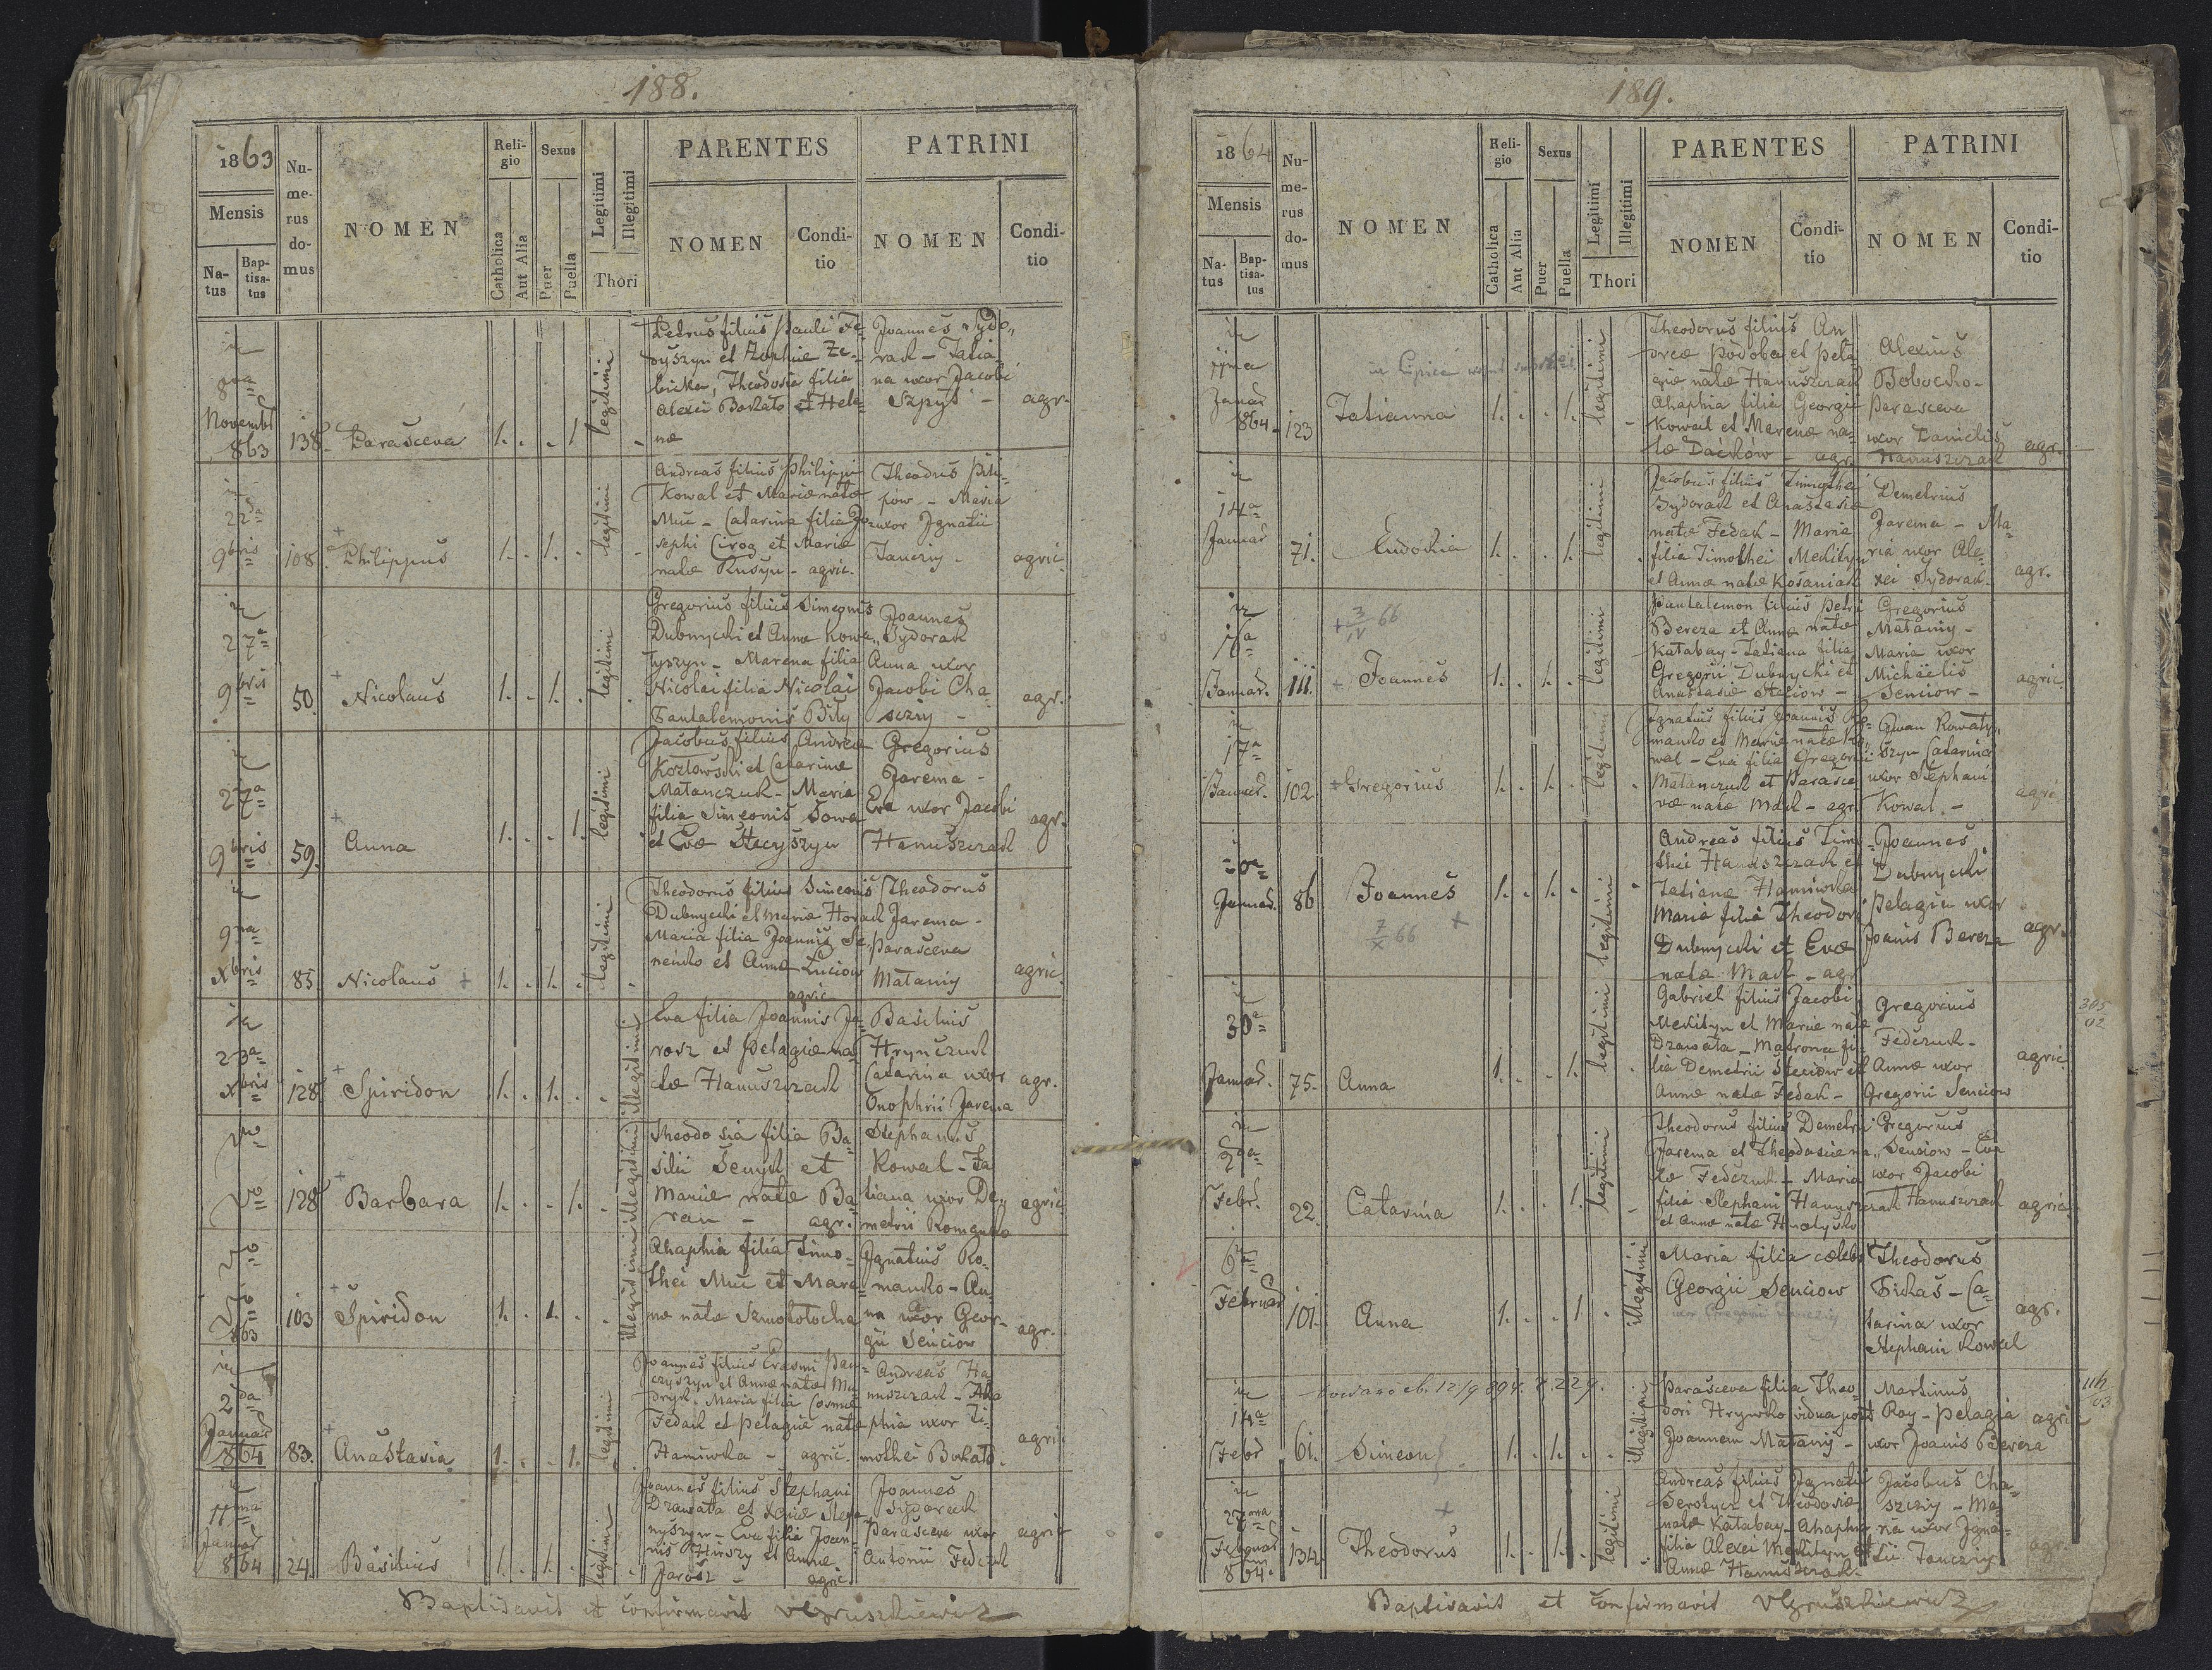 188.
1863
Mensis
Na-
tus
Bap-
tisa-
tus
Nu-
me-
rus
do-
mus
NOMEN
Reli-
gio
Catholica
Aut Alia
Sexus
Puer
Puella
Legitimi
Illegitimi
Thori
PARENTES
NOMEN
Condi-
tio
PATRINI
NOMEN
Condi-
tio
in
8va
Novembr
863
138.
Parasceva
1. . . 1
legitimi
Petrus filius Pauli Fe-
dyszyn et Sophiæ Ze-
bicka, Theodosia filia
Alexii Bokało et Hele-
næ
Joannes Sydo,,
rack - Tatia-
na uxor Jacobi
Szpyt -
agr.
in
22da
9bris
108.
Philippus
1. . 1. .
legitimi
Andreas filius Philippi
Kowal et Mariæ natæ
Muc - Catarina filia Jo-
sephi Cirog et Mariæ
natæ Rusyn - agric.
Theodrus Pili-
pów - Maria
uxor Ignatii
Tancziy -
agric.
in
27a
9bris
50.
Nicolaus
1. . 1. .
legitimi
Gregorius filius Simeonis
Dubnycki et Annæ Kowa,,
łyszyn - Marena filia
Nicolai filia Nicolai
Pantalemonis Biły
Joannes
Sydorack
Anna uxor
Jacobi Cha
scziy -
agr.
in
27a
9bris
59.
Anna
1. . . 1.
legitimi
Jacobus filius Andreæ
Kozłowski et Catarinæ
Matanczuk - Maria
filia Simeonis Sowa
et Evæ Stecyszyn
Gregorius
Jarema -
Eva uxor Jacobi
Hanuszczack
agr.
in
9na
Xbris
85.
Nicolaus +
1. . 1. .
legitimi
Theodorus filius Simeonis
Dubnycki et Mariæ Horack
Maria filia Joannis Se-
neńko et Annæ Luciow
agric
Theodorus
Jarema -
Parasceva
Mataniy
agric.
in
23a
Xbris
128
Spiridon
1. . 1. . .
illegitimi
Eva filia Joannis Ja-
rosz et Pelagiæ na-
tæ Hanuszczack
Basilius
Hrynczuck
Catarina uxor
Onophrii Jarema
agr.
128
Barbara
1. . . 1. .
illegitimi
Theodosia filia Ba-
silii Senyck et
Mariæ natæ Ba
ran - agr.
Stephanus
Kowal - Ta
tiana uxor De,,
metrii Romanko
agric
863
103
Spiridon
1. . 1. . .
illegitimi
Ahaphia filia Timo-
thei Muc et Mare-
næ natæ Szmototocha
Ignatius Ro-
manko - An-
na uxor Geor-
gii Senciów
agr.
in
2da
Januar
864
83.
Anastasia
1. . . 1.
legitimi
Joannes filius Erasmi Pan-
czyszyn et Annæ natæ Mu-
dryck. Maria filia Cosmæ
Fedack et Pelagiæ natæ
Haniwka - agric.
Andreas Ha
nuszczack - Aha
phia uxor Ti-
mothei Bokało.
agric
11ma
Januar
864
24.
Basilius
1. . 1. .
legitimi
Joannes filius Stephani
Drawata et Xeniæ Stepa-
nyszyn - Eva filia Joan-
nis Hirszy et Annæ
Jarosz - agric.
Joannes
Sydorack
Parasceva uxor
Antonii Fedczuk
agric
Baptisavit et confirmavit
189.
1864
Mensis
Na-
tus
Bap-
tisa-
tus
Nu-
me-
rus
do-
mus
NOMEN
Reli-
gio
Catholica
Aut Alia
Sexus
Puer
Puella
Legitimi
Illegitimi
Thori
PARENTES
NOMEN
Condi-
tio
PATRINI
NOMEN
Condi-
tio
in
Januar
864
123
Tatianna
1. . . 1.
legitimi
Theodorus filius An
dreæ Podoba et Pela
giæ natæ Hanuszczack
Ahaphia filia Georgii
Kowal et Marenæ na-
tæ Daćków - agr.
Alexius
Bobocko -
Parasceva
uxor Danielis
Hanuszczack
agr.
in
14a
Januar
71.
Eudokia
1. . . 1.
legitimi
Jacobus filius Timothei
Sydorack et Anastasiæ
natæ Fedak - Maria
filia Timothei Mekityn
et Annæ natæ Kosaniack
Demetrius
Jarema - Ma
ria uxor Ale-
xei Sydorack
agr.
in
16a
Januar.
111.
+ 3/IV 66
Joannes
1. . 1. .
legitimi
Pantalemon filius Petri
Bereza et Annæ natæ
Katabay - Tatiana filia
Gregorii Dubnycki et
Anastasiæ Steciow -
Gregorius
Mataniy -
Maria uxor
Michäelis
Senciow -
agric.
in
17a
Januar.
102.
+ Gregorius
1. . 1. .
legitimi
Ignatius filius Joannis Ro-
manko et Mariæ natæ Ko-
wal - Eva filia Gregorii
Matanczuck et Parasce
væ natæ Mack - agr.
Iwan Kowaty,,
szyn Catarina
uxor Stephani
Kowal. -
agric
Januar.
86.
Joannes
7/X 66
+
1. . 1. .
legitimi
Andreas filius Timo-
thei Hanuszczack et
Tatianæ Haniwka
Maria filia Theodori
Dubnycki et Evæ
natæ Mack - agr
Joannes
Dubnycki
Pelagia uxor
Joanis Bereza
agr.
30a
Januar.
75.
Anna
1. . . 1.
legitimi
Gabriel filius Jacobi
Mekityn et Mariæ natæ
Drawata - Matrona fi-
lia Demetrii Steciow et
Annæ natæ Fedack -
Gregorius
Fedczuck -
Annæ uxor
Gregorii Senciow
agric.
305
02
in
2da
Febr.
22.
Catarina
1. . . 1.
legitimi
Theodorus filius Demetri
Jarema et Theodosiæ na,,
tæ Fedczuck - Maria
filia Stephani Hanuszczack
Gregorius
Senciow - Eva
uxor Jacobi
Hanuszczack
agric.
6ta
Februar
101.
Anna
1. . . 1 .
illegitimi
Maria filia cælebs
Georgii Senciow
Theodorus
Fickas - Ca-
tarina uxor
Stephani Kowal
agr.
in
14a
Febr
61.
Simeon
1. . 1. . .
illegitimi
Parasceva filia Theo-
dori Hrynko vidua post
Joannem Mataniy -
Martinus
Roy - Pelagia
uxor Joanis Bereza
agric
116
03
in
27ma
Februar
864.
134.
+
Theodorus
1. . 1. .
legitimi
Andreas filius Ignatii
Serotyck et Theodosiæ
natæ Katabay - Ahaphia
filia Alexei Mekityn et
Annæ Hanuszczack.
Jacobus Cha-
szczy - Ma-
ria uxor Igna-
tii Tanczy
agr.
Baptisavit et confirmavit